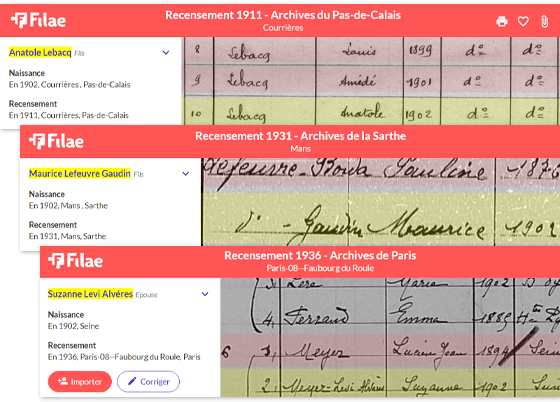 Filae
Recensement 1911 - Archives du Pas-de-Calais
Courrières
Anatole Lebacq Fils
Naissance
En 1902, Courrières , Pas-de-Calais
Recensement
En 1911, Courrières, Pas-de-Calais
8 Lebacq Louis 1899 do do
9 Lebacq Amédé 1901 do do
10 Lebacq Anatole 1902 do do
Filae
Recensement 1931 - Archives de la Sarthe
Mans
Maurice Lefeuvre Gaudin Fils
Naissance
En 1902, Mans , Sarthe
Recensement
En 1931, Mans, Sarthe
Lefeuvre Pauline 1876
do - Gaudin Maurice 1902
Filae
Recensement 1936 - Archives de Paris
Paris-08--Faubourg du Roule
Suzanne Levi Alvéres Epouse
Naissance
En 1902, Seine
Recensement
En 1936, Paris-08--Faubourg du Roule, Paris
Importer
Corriger
Marie 1902
4 Ferrand Emma 1885
6 Meyer Lucien Jean 1894
2 Meyer-Levi Alvéres Suzanne 1902